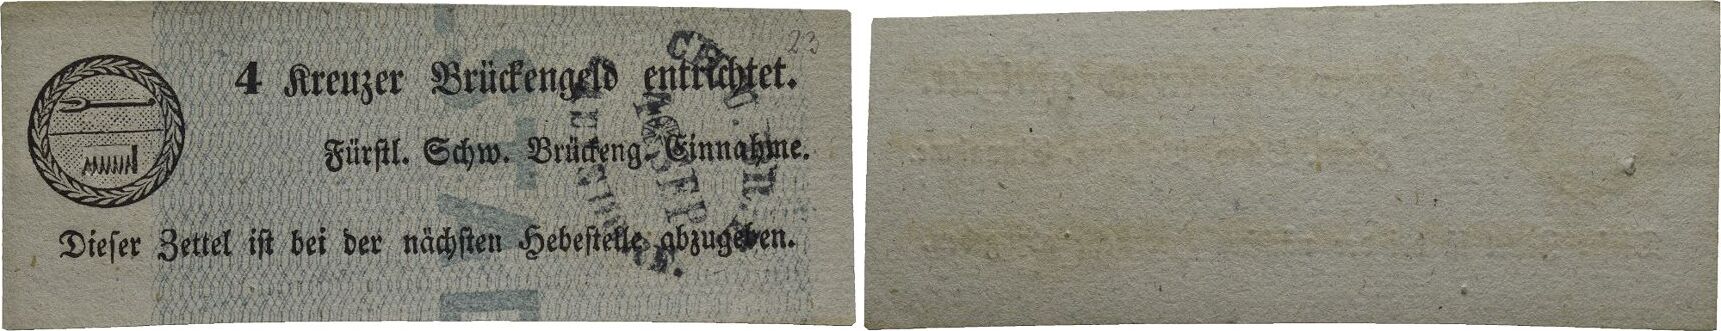 23
4 Kreuzer Brückengeld entrichtet.
Fürstl. Schw. Brückeng. Einnahme.
Dieser Zettel ist bei der nächsten Hebestelle abzugeben.